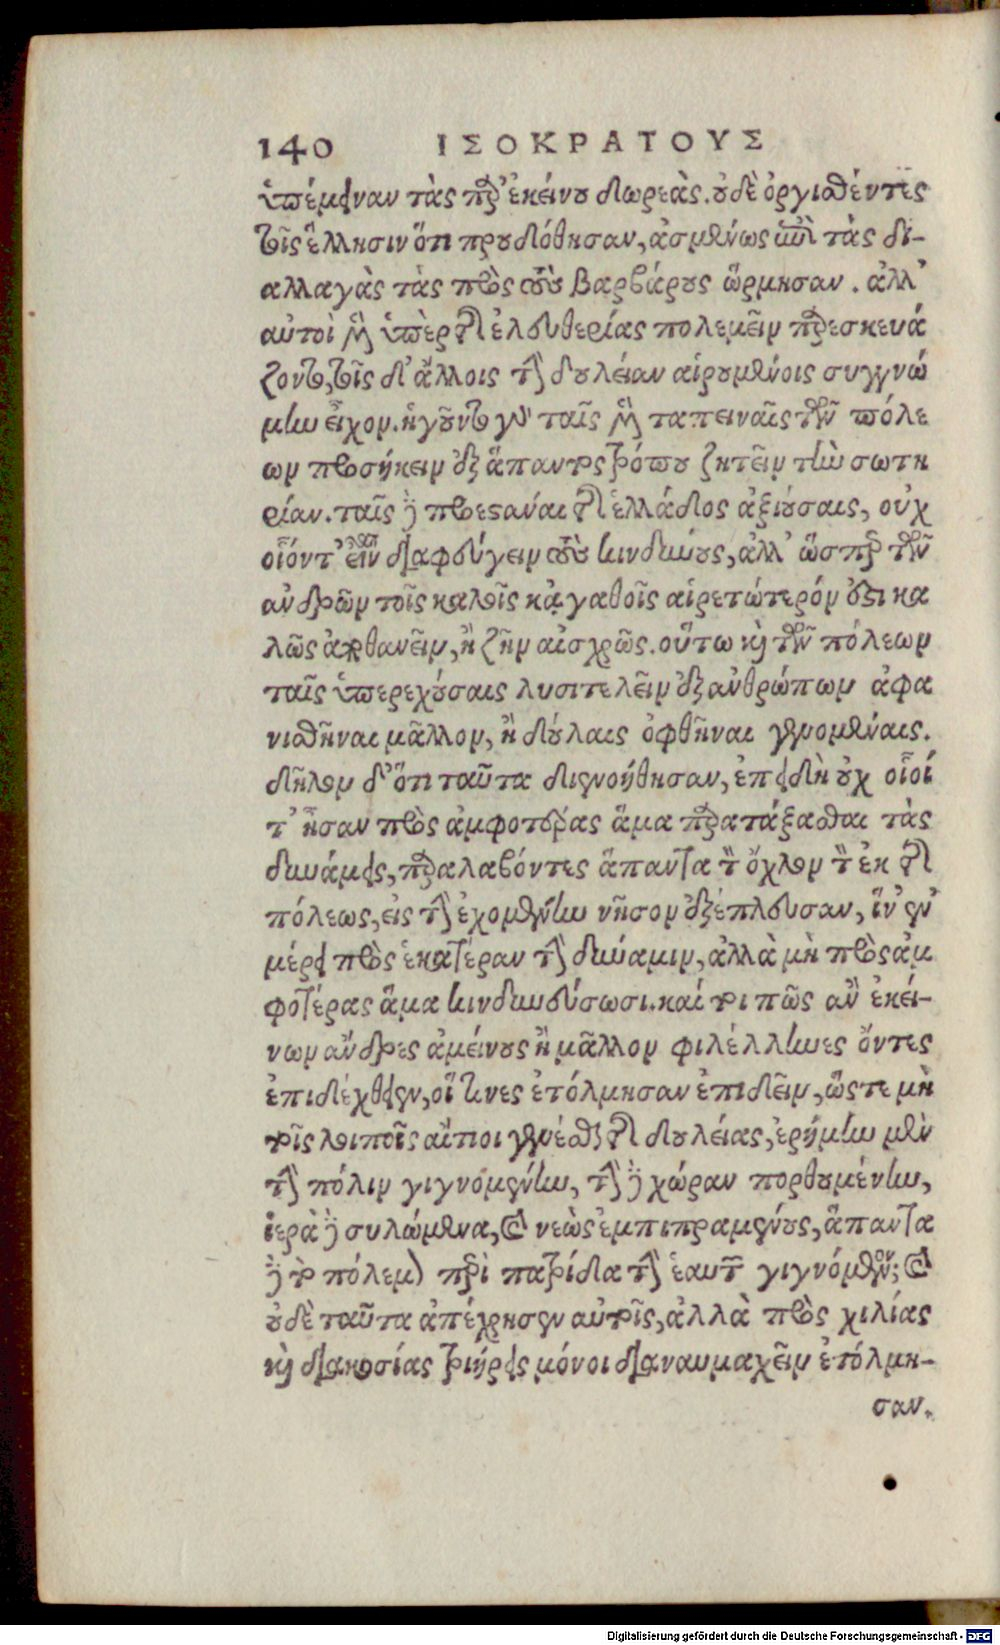 140 ΙΣΟΚΡΑΤΟΥΣ
ὑπέμειναν τὰς παρ’ ἐκείνου δωρεὰς. οὐδὲ ὀργισθέντες
τοῖς ἕλλησιν ὅτι προυδόθησαν, ἀσμένως ἐπὶ τὰς δι-
αλλαγὰς τὰς πρὸς τοὺς βαρβάρους ὥρμησαν. ἀλλ’
αὐτοὶ μὲν ὑπὲρ τῆς ἐλευθερίας πολεμεῖν παρεσκευά
ζοντο, τοῖς δ’ ἄλλοις τὴν δουλείαν αἱρουμένοις συγγνώ
μην εἶχον. ἡγοῦντο γὰρ ταῖς μὲν ταπειναῖς τῶν πόλε
ων προσήκειν ἐξ ἅπαντος τρόπου ζητεῖν τὴν σωτη
ρίαν. ταῖς δὲ προεστάναι τῆς ἑλλάδος ἀξιούσαις, οὐχ
οἷόντ’ εἶναι διαφεύγειν τοὺς κινδύνους, ἀλλ’ ὥσπερ τῶν
ἀνδρῶν τοῖς καλοῖς κἀγαθοῖς αἱρετώτερόν ἐστι κα
λῶς ἀποθανεῖν, ἢ ζῆν αἰσχρῶς. οὕτω καὶ τῶν πόλεων
ταῖς ὑπερεχούσαις λυσιτελεῖν ἐξ ἀνθρώπων ἀφα
νισθῆναι μᾶλλον, ἢ δούλαις ὀφθῆναι γενομέναις.
δῆλον δ’ ὅτι ταῦτα διενοήθησαν, ἐπειδὴ οὐχ οἷοί
τ’ ἦσαν πρὸς ἀμφοτέρας ἅμα παρατάξασθαι τὰς
δυνάμεις, παραλαβόντες ἅπαντα τὸν ὄχλον τὸν ἐκ τῆς
πόλεως, εἰς τὴν ἐχομένην νῆσον ἐξέπλευσαν, ἵν’ ἐν
μέρει πρὸς ἑκατέραν τὴν δύναμιν, ἀλλὰ μὴ πρὸς ἀμ
φοτέρας ἅμα κινδυνεύσωσι. καί τοι πῶς ἂν ἐκεί-
νων ἄνδρες ἀμείνους ἢ μᾶλλον φιλέλληνες ὄντες
ἐπιδειχθεῖεν, οἵ τινες ἐτόλμησαν ἐπιδεῖν, ὥστε μὴ
τοῖς λοιποῖς αἴτιοι γενέσθαι τῆς δουλείας, ἐρήμην μὲν
τὴν πόλιν γιγνομένην, τὴν δὲ χώραν πορθουμένην,
ἱερὰ δὲ συλώμενα, καὶ νεὼς ἐμπιπραμένους, ἅπαντα
δὲ τὸν πόλεμον περὶ πατρίδα τὴν ἑαυτῶν γιγνόμενον; καὶ
οὐδὲ ταῦτα ἀπέχρησεν αὐτοῖς, ἀλλὰ πρὸς χιλίας
καὶ διακοσίας τριήρεις μόνοι διαναυμαχεῖν ἐτόλμη-
σαν.
Digitalisierung gefördert durch die Deutsche Forschungsgemeinschaft - DFG